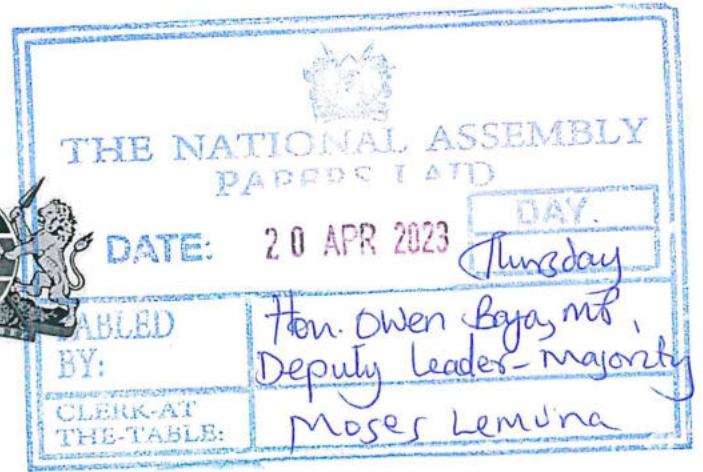 THE NATIONAL ASSEMBLY
PAPERS LAID
DATE: 20 APR 2023
DAY.
Thursday
TABLED BY:
Hon. Owen Baya, MP,
Deputy Leader-Majority
CLERK-AT THE-TABLE:
Moses Lemuna